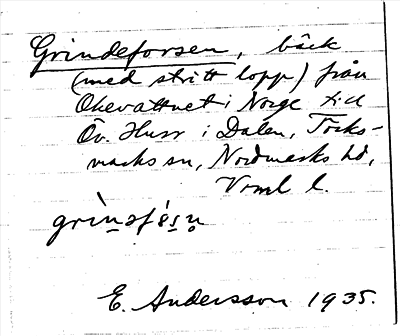 Grindeforsen, bäck
(med stritt lopp) från
Okevattnet i Norge till
Öv. Husr i Dalen, Tocks-
marks sn, Nordmarks hd,
Vrml l.
E. Andersson 1935.